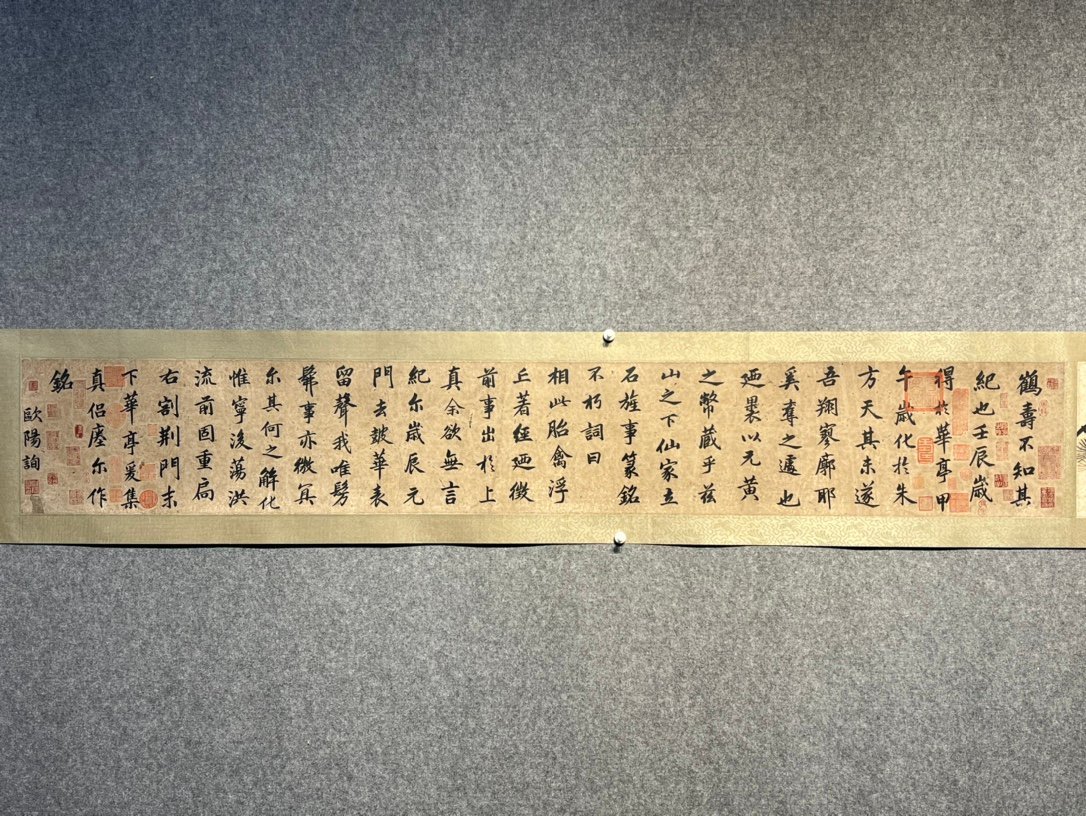 鶴壽不知其
紀也壬辰歲
得於華亭甲
午歲化於朱
方天其未遂
吾翔寥廓耶
奚奪之遽也
廼裹以元黃
之幣藏乎茲
山之下仙家立
石旌事篆銘
不朽詞曰
相此胎禽浮
丘著經廼徴
前事出於上
真余欲無言
紀尔歲辰元
門去皷華表
留聲我唯髣
髴事亦微冥
尔其何之解化
惟寧後蕩洪
流前固重扃
右割荆門未
下華亭爰集
真侣廛尔作
銘
歐陽詢